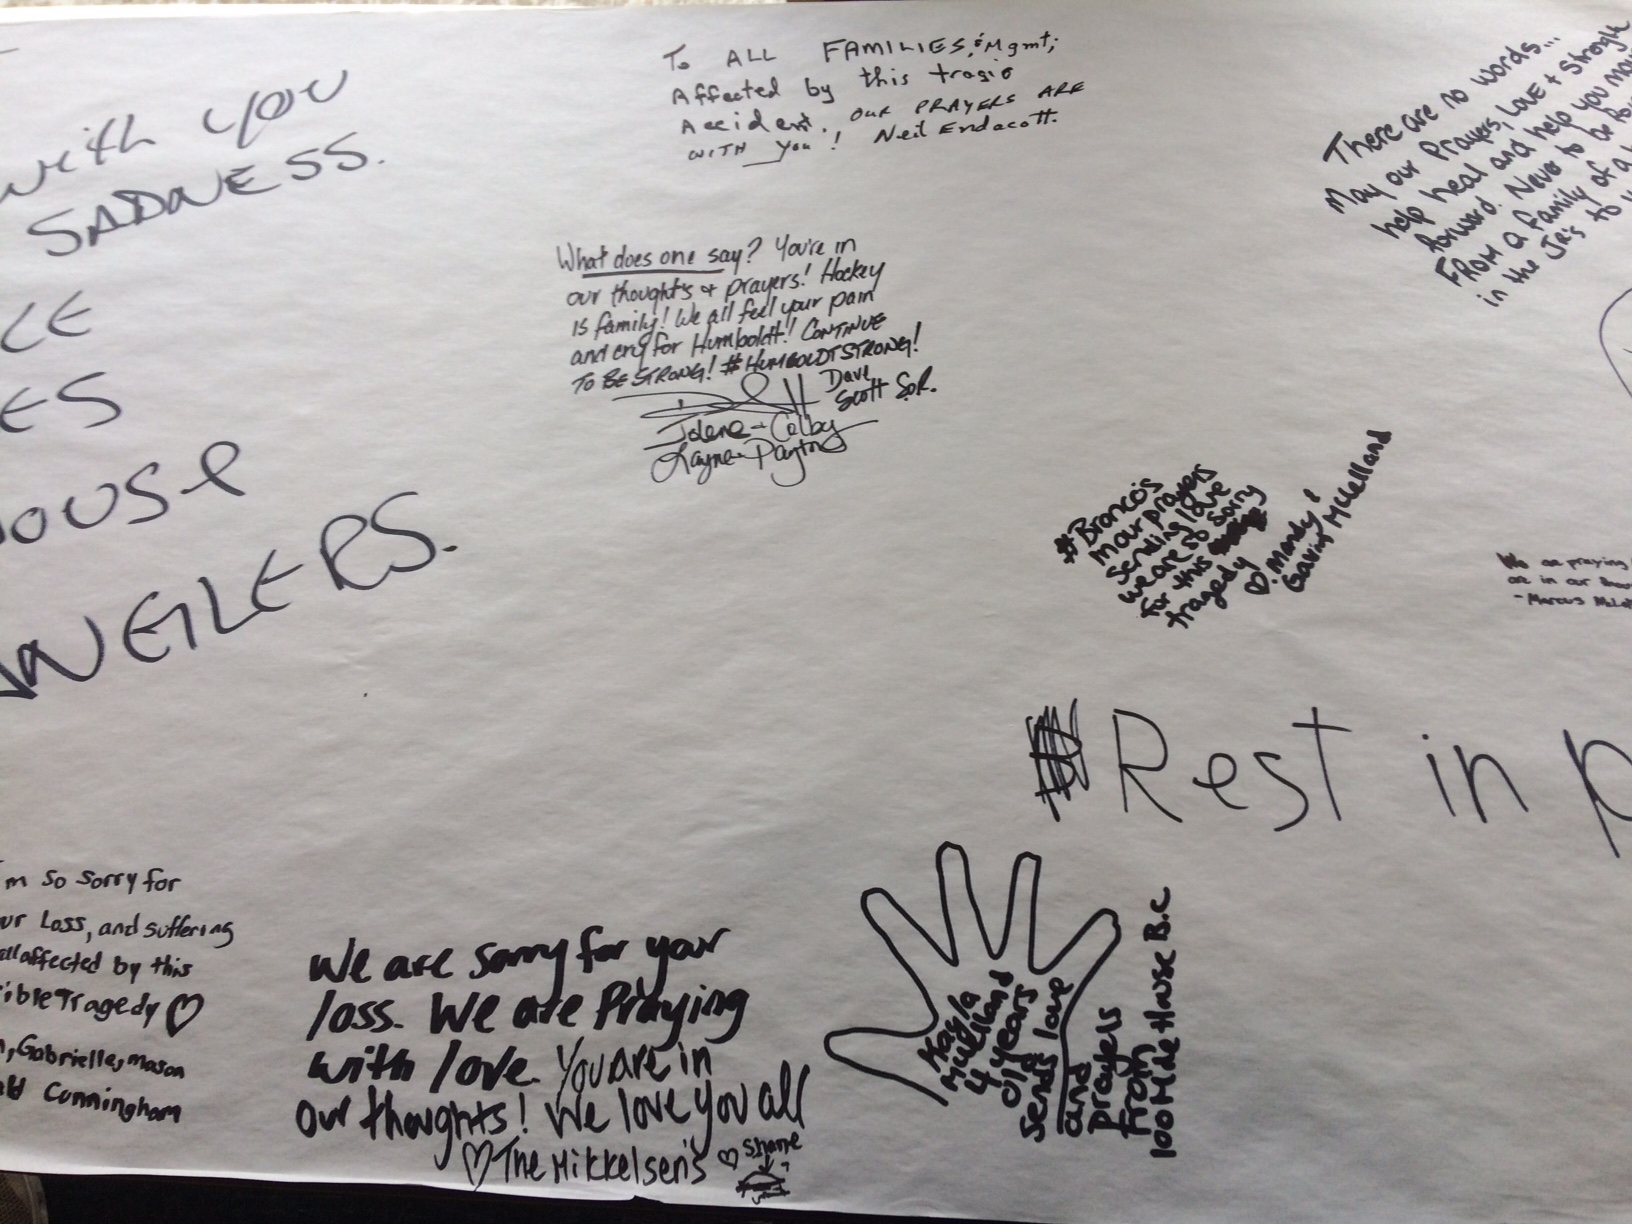 with you
SADNESS.
CE
ES
ouse
WEILERS.
To ALL FAMILIES, & Mgmt;
Affected by this tragic
Accident., OUR PRAYERS ARE
WITH you! Neil Endacott.
What does one say? You're in
our thoughts & prayers! Hockey
IS family! We all feel your pain
and cry for Humboldt! CONTINUE
TO BE STRONG! #HUMBOLDTSTRONG!
Dave
Scott SR.
Jolene + Colby
Layne + Payton
There are no words...
May our Prayers, Love + Strength
help heal and help you mov
forward. Never to be for
FROM a family of a
in the JR's to
#Bronco's
in our prayers
Sending love
we are so sorry
for this
tragedy
♡ Mandy &
Gavin McLelland
We are praying
are in our
- Marcus McLel
# Rest in p
I'm so sorry for
ur Loss, and suffering
all affected by this
ible Tragedy ♡
, Gabrielle, Mason
ld Cunningham
We are sorry for your
loss. We are Praying
with love. You are in
our thoughts! We love you all
♡ The Mikkelsen's ♡ Shane
Kayla
Mclelland
4 years
old
sends love
and
prayers
from
100 Mile House B.C